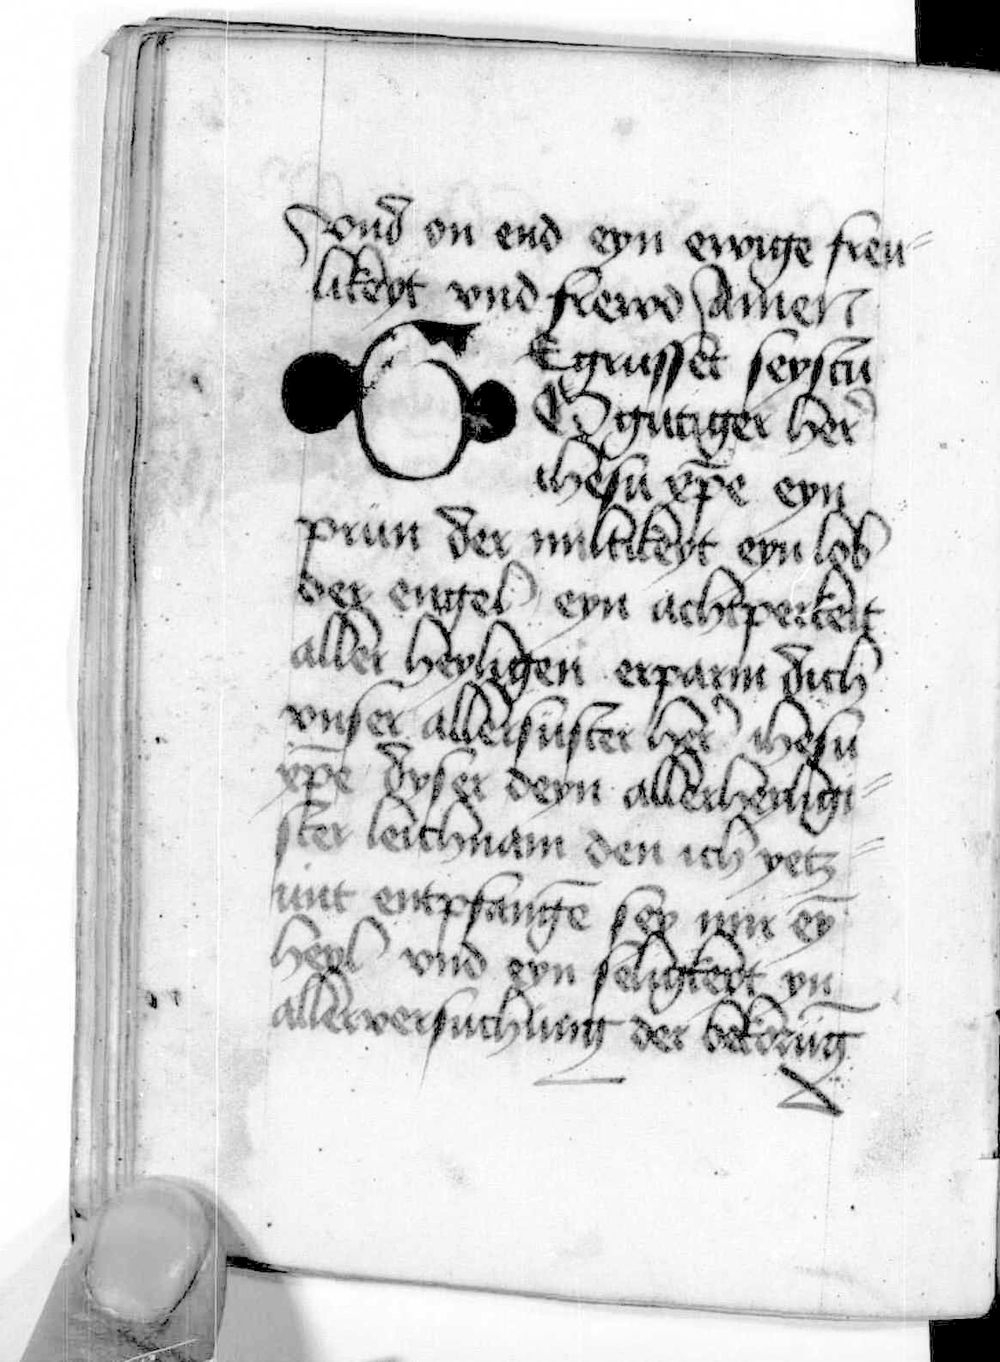 vnd on end eyn ewige freu⸗
likeyt vnd frewd Amen
GEgrusset seystu
O gutiger her
ihesu xp̄e eyn
prün der miltikeyt eyn lob
der engel eyn achtperkeit
aller heyligen erparm dich
vnser allersüster her ihesu
xp̄e dyser deyn allerheiligi⸗
ster leichnam den ich yetz⸗
unt entpfangē sey mir eȳ
heyl vnd eyn seligkeyt yn
aller versuchung der